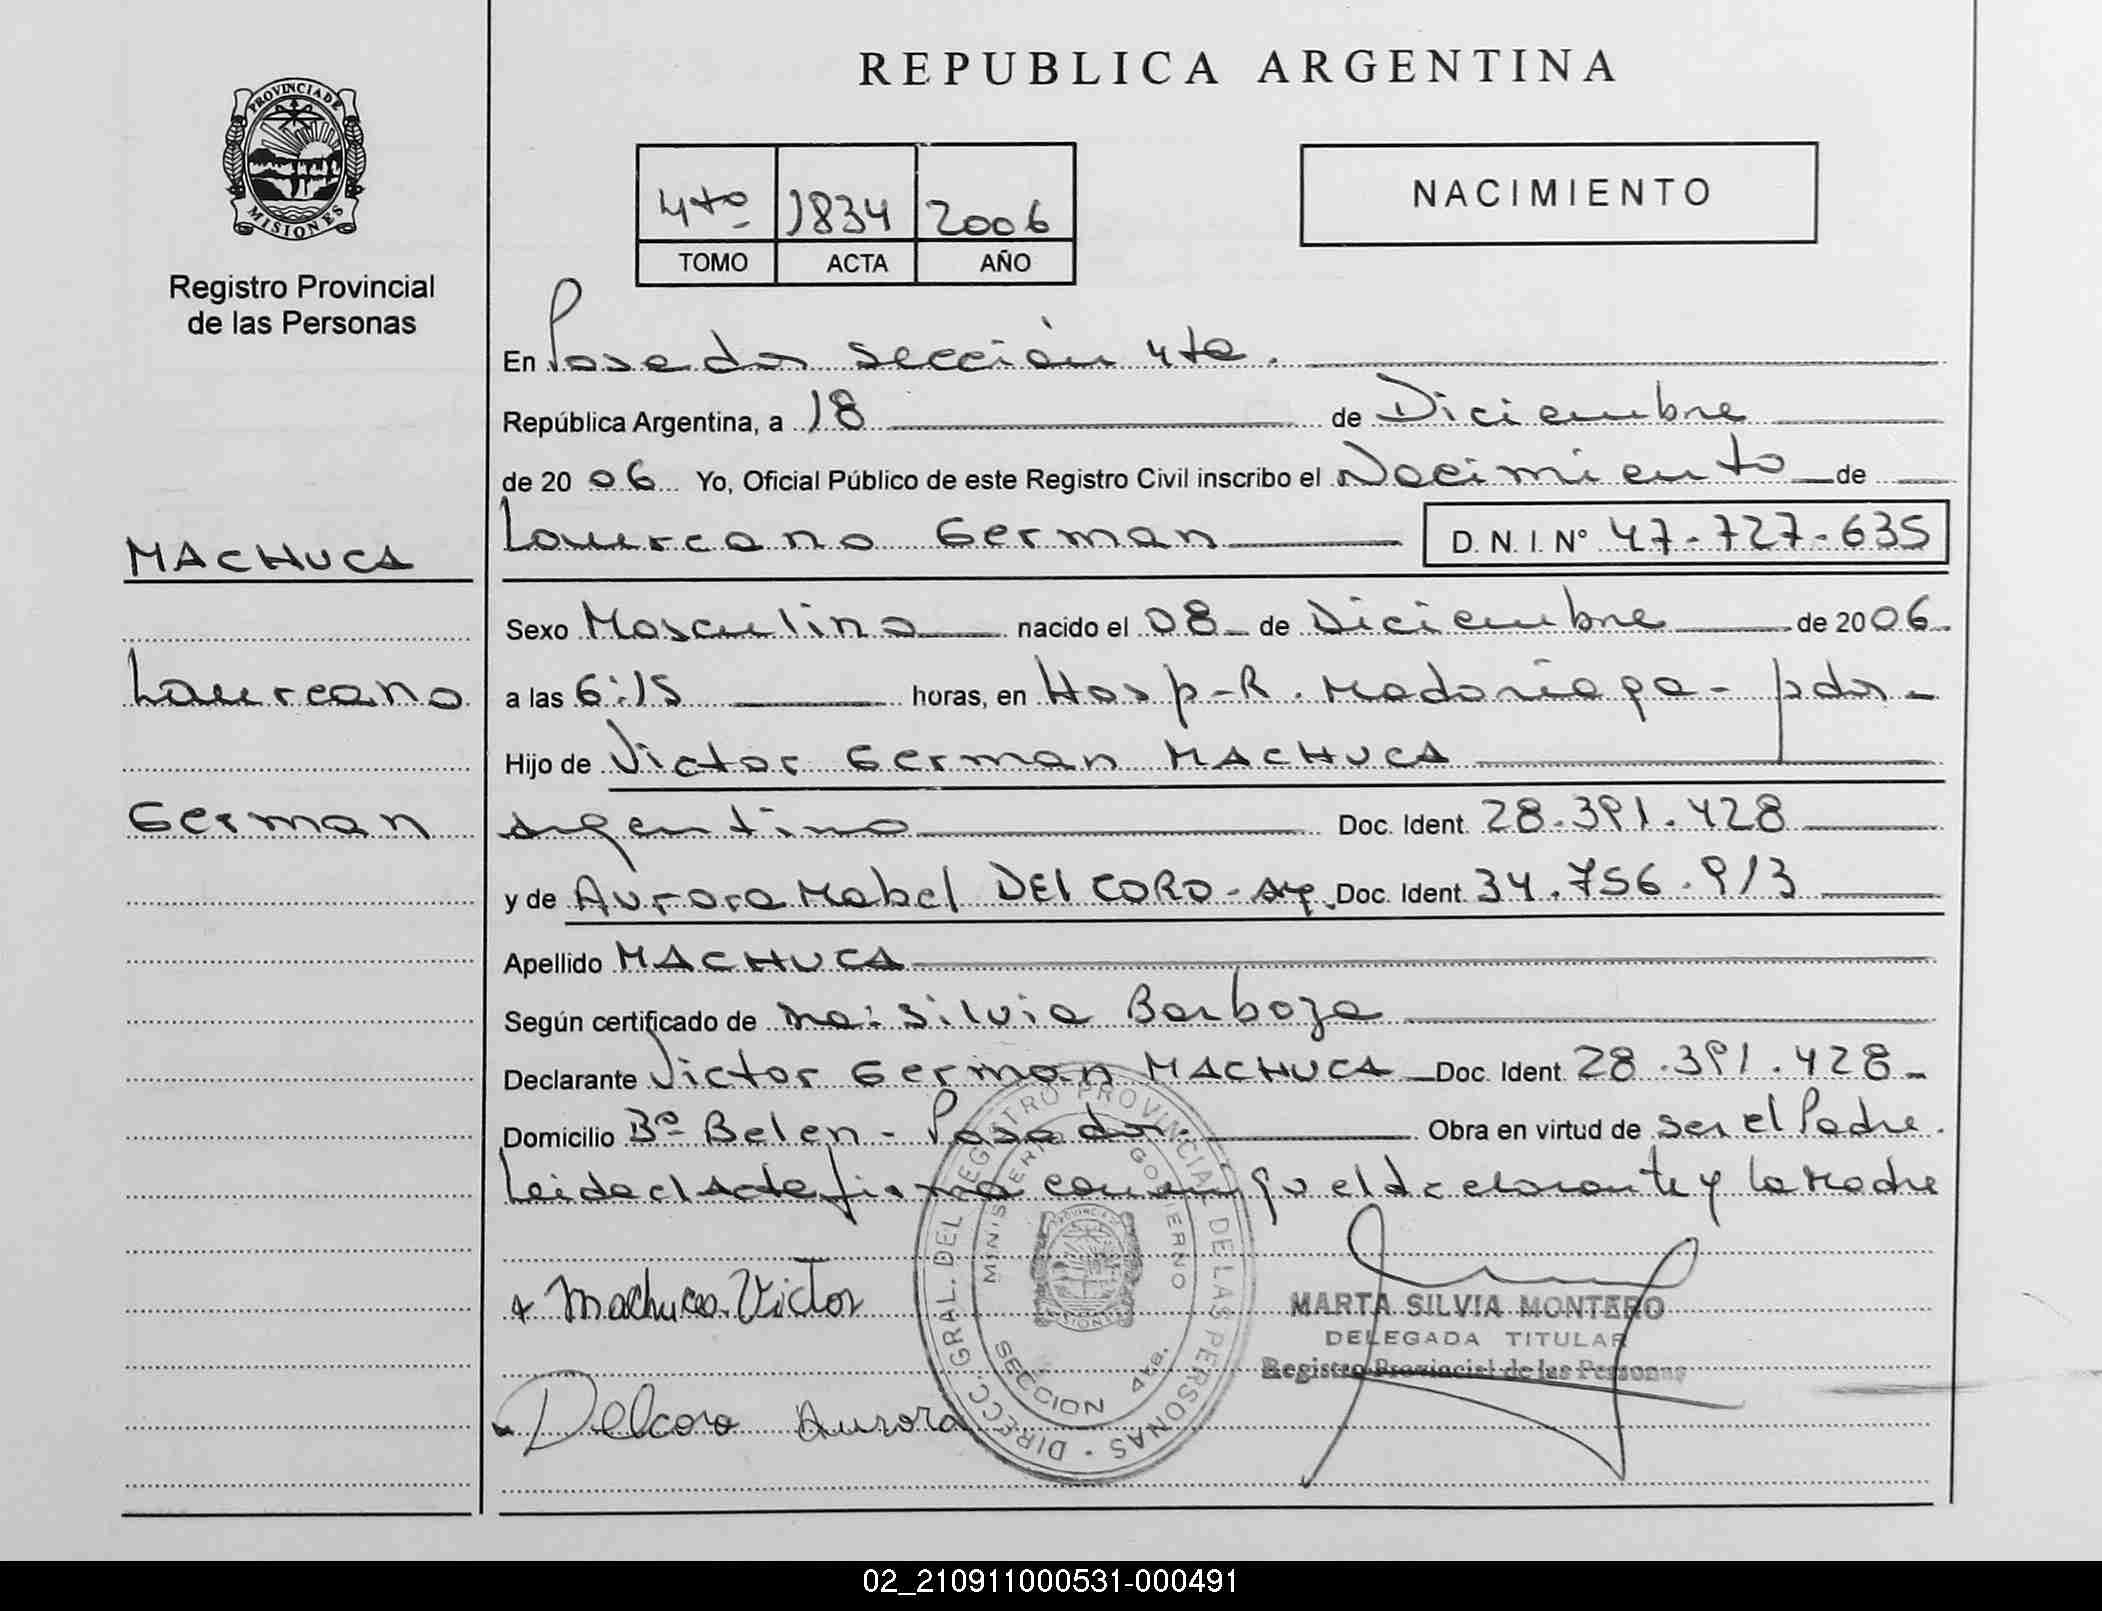 REPUBLICA ARGENTINA
PROVINCIA DE
MISIONES
Registro Provincial
de las Personas
4to 1834 2006
TOMO ACTA AÑO
NACIMIENTO
En Posadas sección 4ta.
República Argentina, a 18 de Diciembre
de 2006 Yo, Oficial Público de este Registro Civil inscribo el Nacimiento de
MACHUCA
Laureano German D. N. I. N° 47-727-635
Sexo Masculino nacido el 08 de Diciembre de 2006
Laureano
a las 6:15 horas, en Hosp-R. Madariaga - pdas-
Hijo de Victor German MACHUCA
German
argentino Doc. Ident. 28.391.428
y de Aurora Mabel DEL CORO - arg. Doc. Ident. 34.756.913
Apellido MACHUCA
Según certificado de Silvia Barboza
Declarante Victor German MACHUCA Doc. Ident. 28.391.428-
Domicilio B° Belen - Posadas. Obra en virtud de ser el Padre.
Leida el Acta firma conmigo el declarante y la Madre
Machuca Victor
MARTA SILVIA MONTERO
DELEGADA TITULAR
Registro Provincial de las Personas
Delcoro Aurora
DIRECC. GRAL. DEL REGISTRO PROVINCIAL DE LAS PERSONAS
MINISTERIO GOBIERNO
SECCION 4ta.
02_210911000531-000491